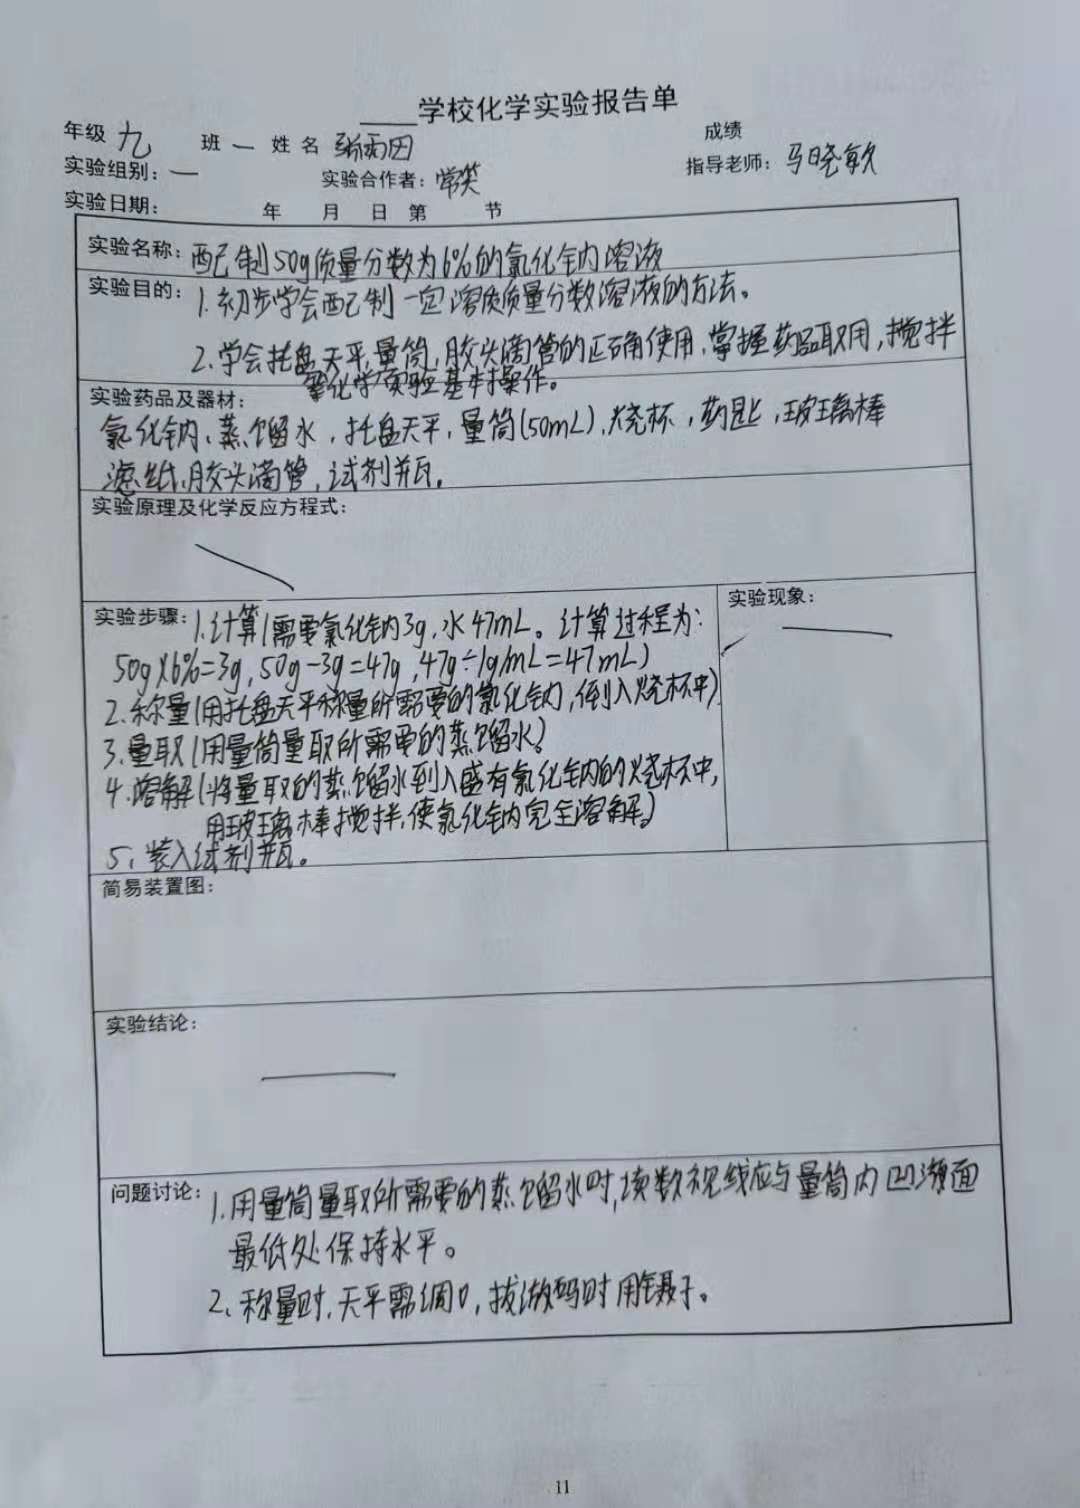 学校化学实验报告单
年级 九 班 一 姓名 成绩
实验组别：一 实验合作者：常笑 指导老师：马晓敏
实验日期： 年 月 日 第 节
实验名称：配制50g质量分数为6%的氯化钠溶液
实验目的：1.初步学会配制一定溶质质量分数溶液的方法。
2.学会托盘天平,量筒,胶头滴管的正确使用,掌握药品取用,搅拌
等化学实验基本操作。
实验药品及器材：
氯化钠、蒸馏水,托盘天平,量筒(50mL)、烧杯,药匙,玻璃棒
滤纸、胶头滴管,试剂瓶。
实验原理及化学反应方程式：
实验步骤：1.计算(需要氯化钠3g,水47mL。计算过程为：
50g×6%=3g,50g-3g=47g,47g÷1g/mL=47mL)
2.称量(用托盘天平称量所需要的氯化钠,倒入烧杯中)
3.量取(用量筒量取所需要的蒸馏水)
4.溶解(将量取的蒸馏水到入盛有氯化钠的烧杯中,
用玻璃棒搅拌,使氯化钠完全溶解)
5、装入试剂瓶。
实验现象：
简易装置图：
实验结论：
问题讨论：1.用量筒量取所需要的蒸馏水时,读数视线应与量筒内凹液面
最低处保持水平。
2、称量时,天平需调0,拔砝码时用镊子。
11